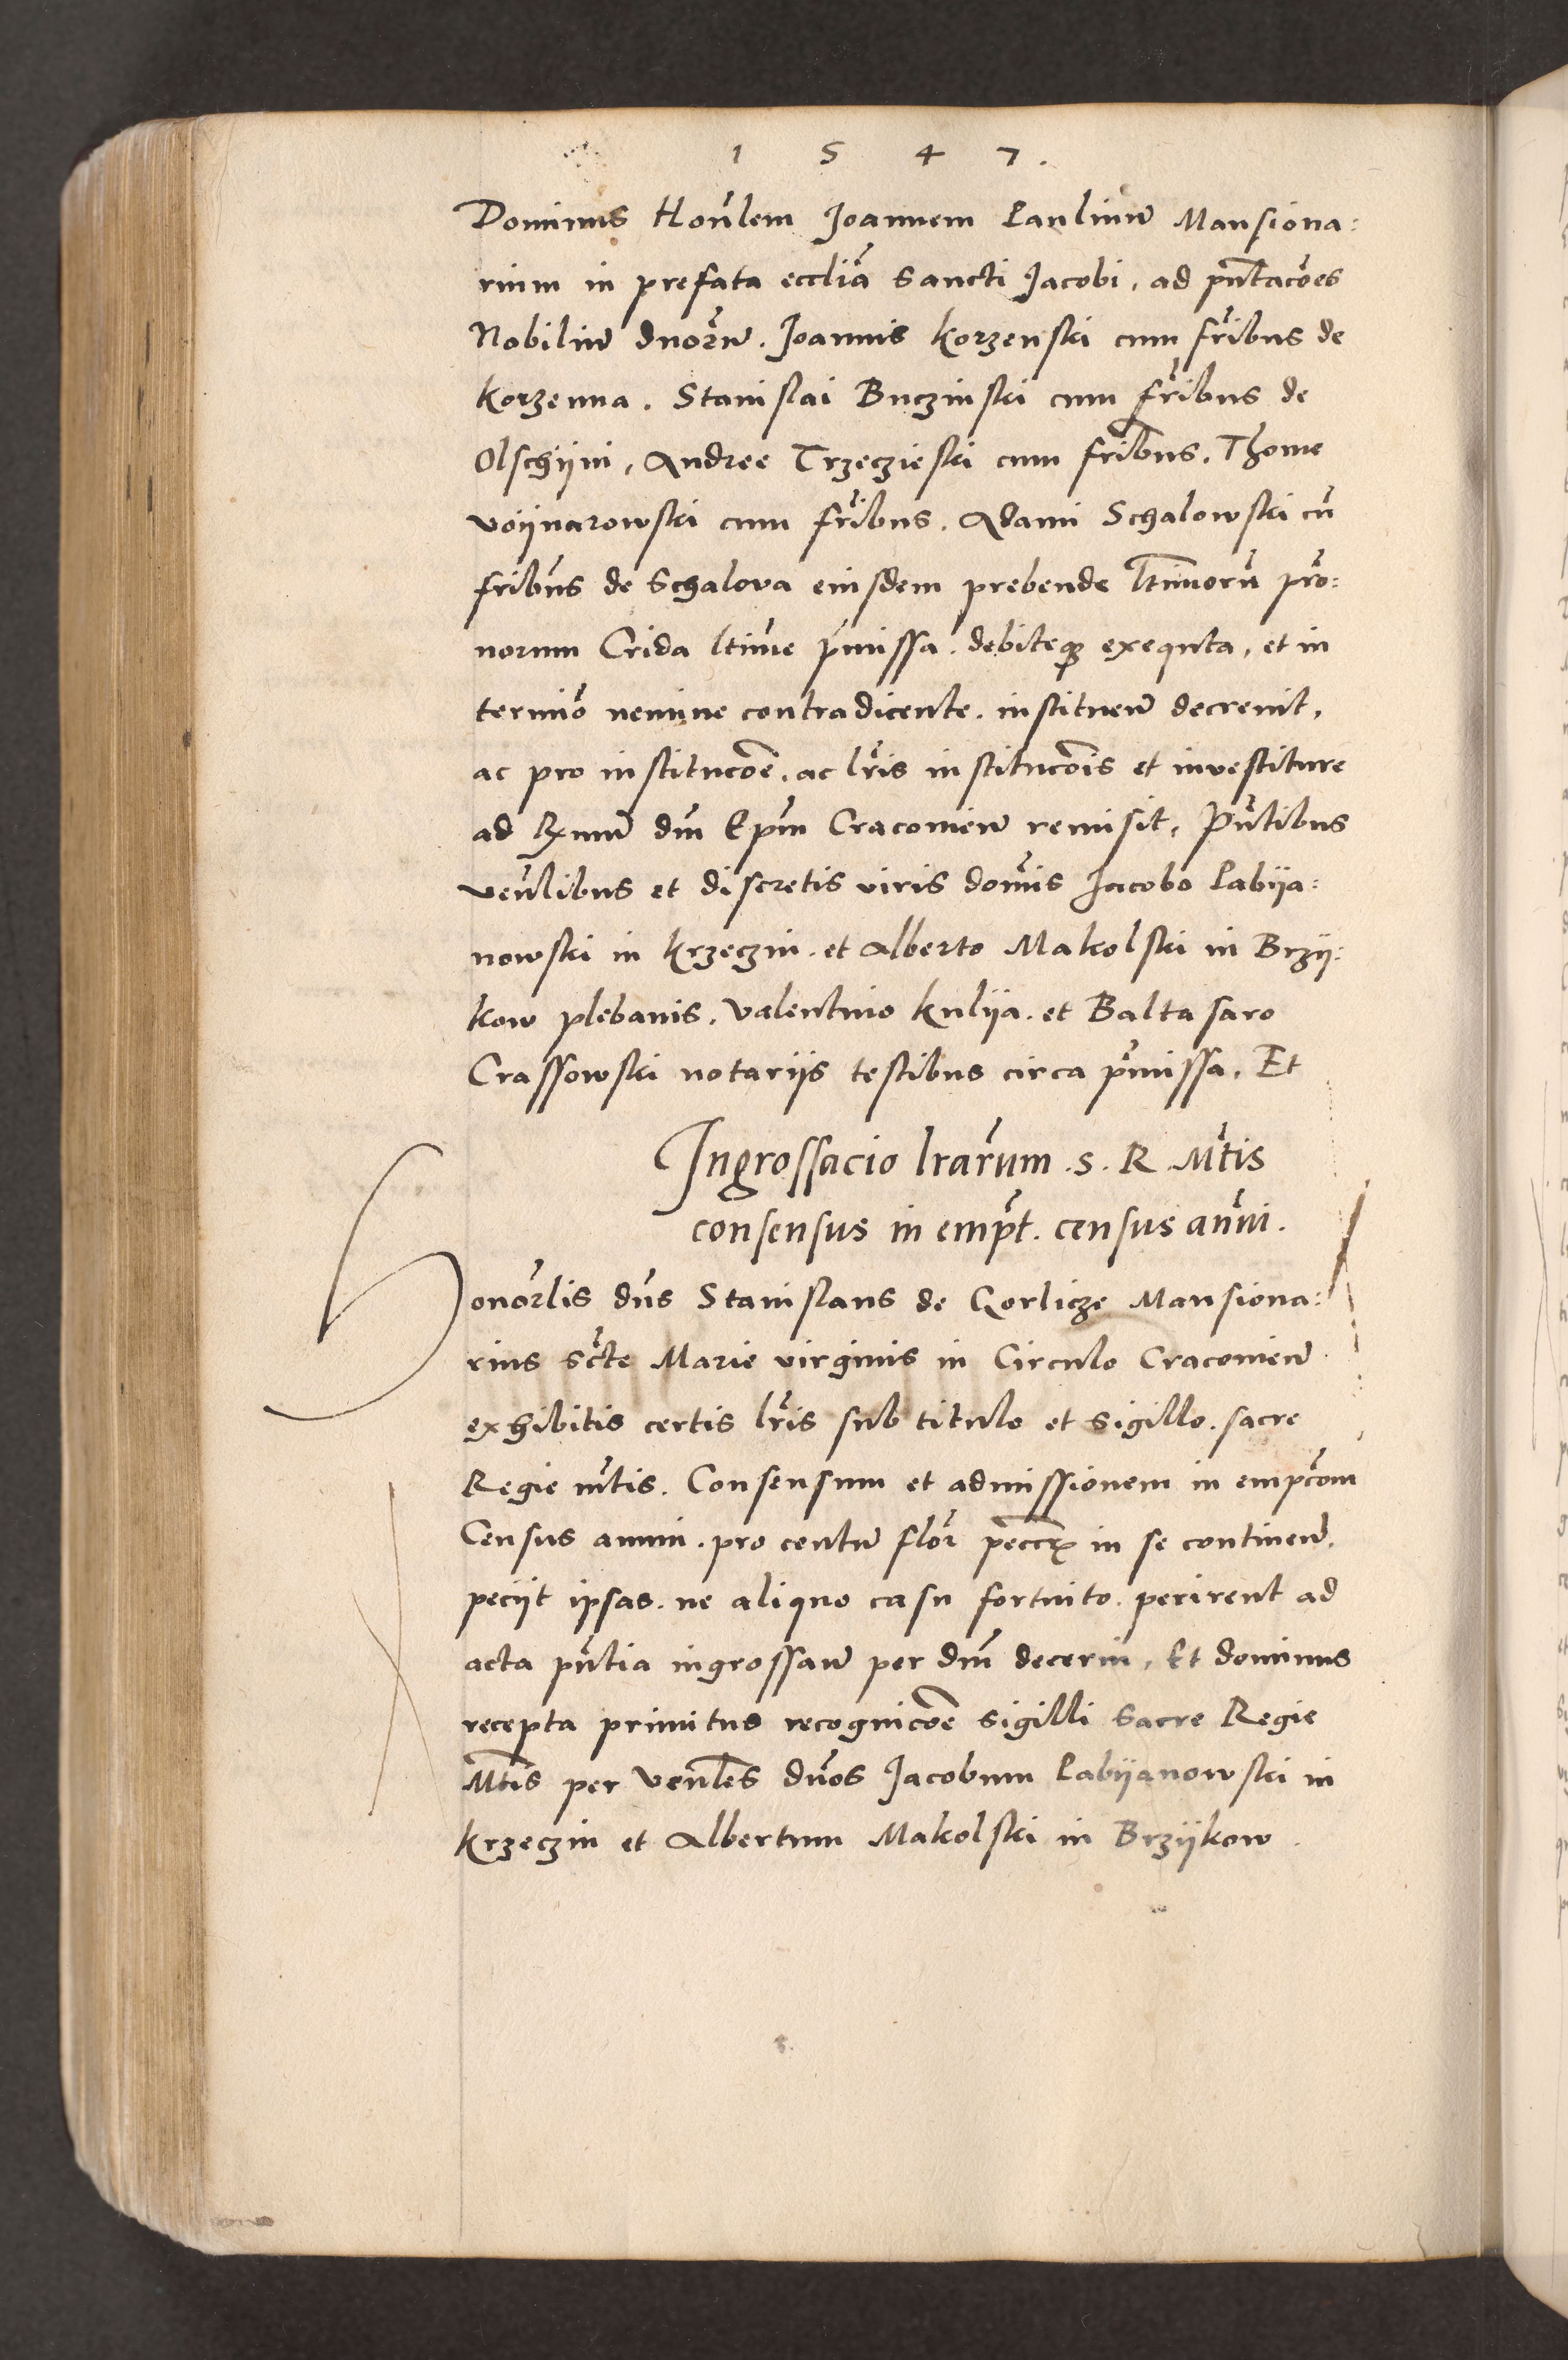 1547.
Dominus Hon̄lem Joannem Paulinū Mansiona:
rium in prefata eccliā Sancti Jacobi, ad pn̄tacōes
Nobiliū dnorū. Joannis Korzenski cum fribus de
Korzenna. Stanislai Buczinski cum fribus de
Olschijni, Andree Trzeczieski cum fribus. Thome
Voijnarowski cum fribus. Adami Schalowski cū
fribus de Schalova eiusdem prebende ltimorū pro:
norum Crida ltime pmissa. debiteq̄ exequta, et in
termio nemine contradicente. instituen̄ decrevit,
ac pro institucōe. ac lris institucōis et investiture
ad Rxmū dm̄ Epm̄ Cracovien̄ remisit, Pn̄tibus
ven̄libus et discretis viris domīs Jacobo Labija:
nowski in Krzeczin. et Alberto Makolski in Brzij:
kow plebanis. Valentino Kulija. et Baltasaro
Crassowski notarijs testibus circa pmissa. Et
Ingrossacio lrarum .S. R. Mtis
consensus in empt. census annui.
Honorlis dn̄s Stanislaus de Gorlicze Mansiona:
rius Scte Marie virginis in Circulo Cracovien̄
exhibitis certis lris sub titulo et sigillo. sacre
Regie mtis. Consensum et admissionem in empcōm
Census annui. pro centū flor peccx̄ in se continen̄.
peciit ipsas. ne aliquo casu fortuito. perirent ad
acta pn̄tia ingrossan̄ per dm̄ decerni, Et dominus
recepta primitus recognicōe sigilli Sacre Regie
Mtis per Ven̄les dn̄os Jacobum Labijanowski in
Krzeczin et Albertum Makolski in Brzijkow.